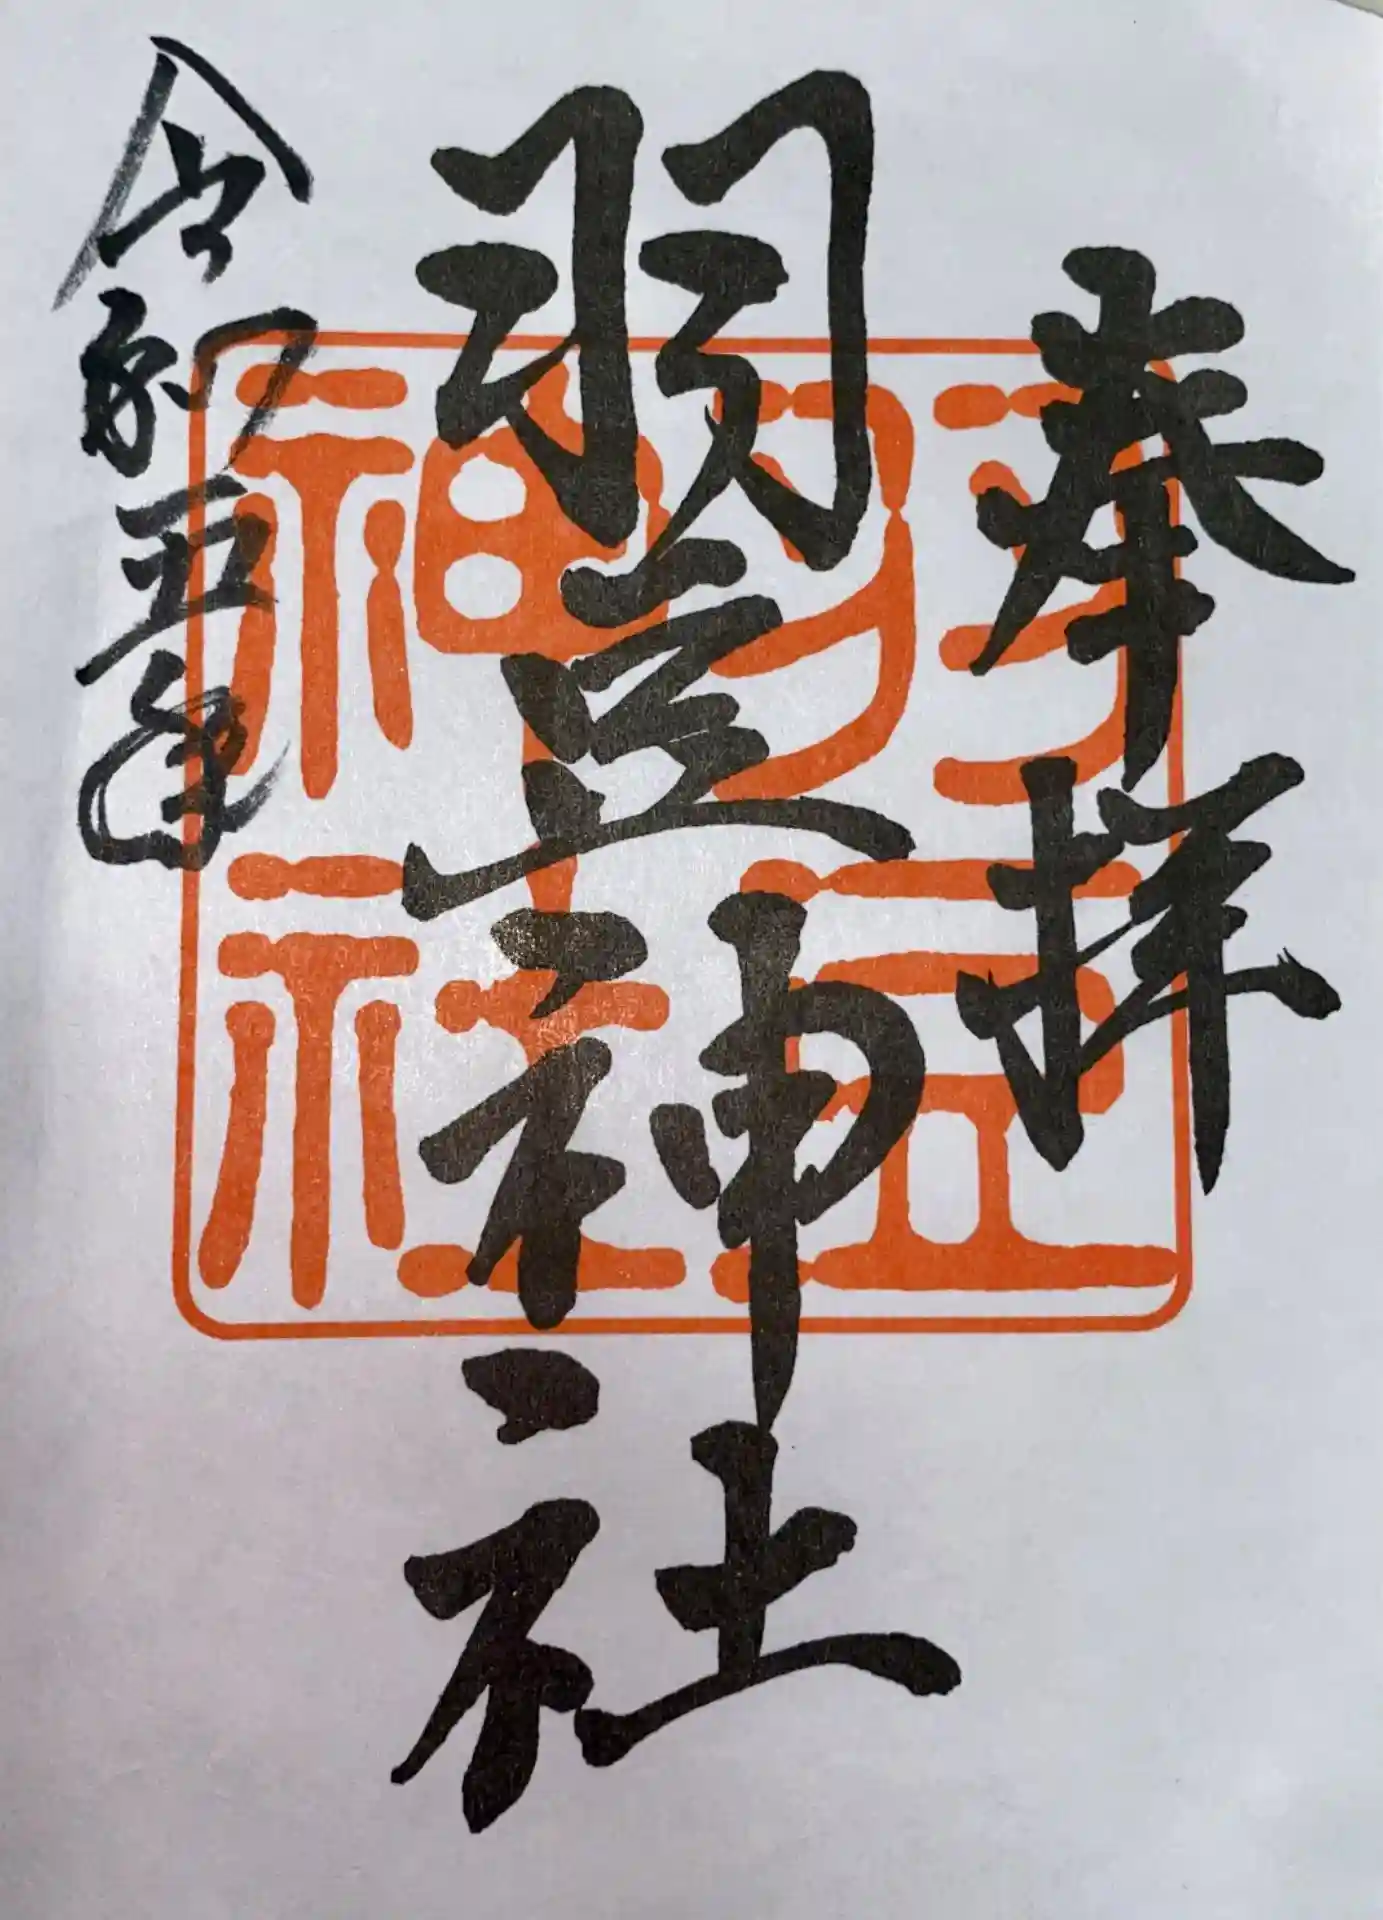 奉拝
羽豆神社
羽豆神社
令和五年